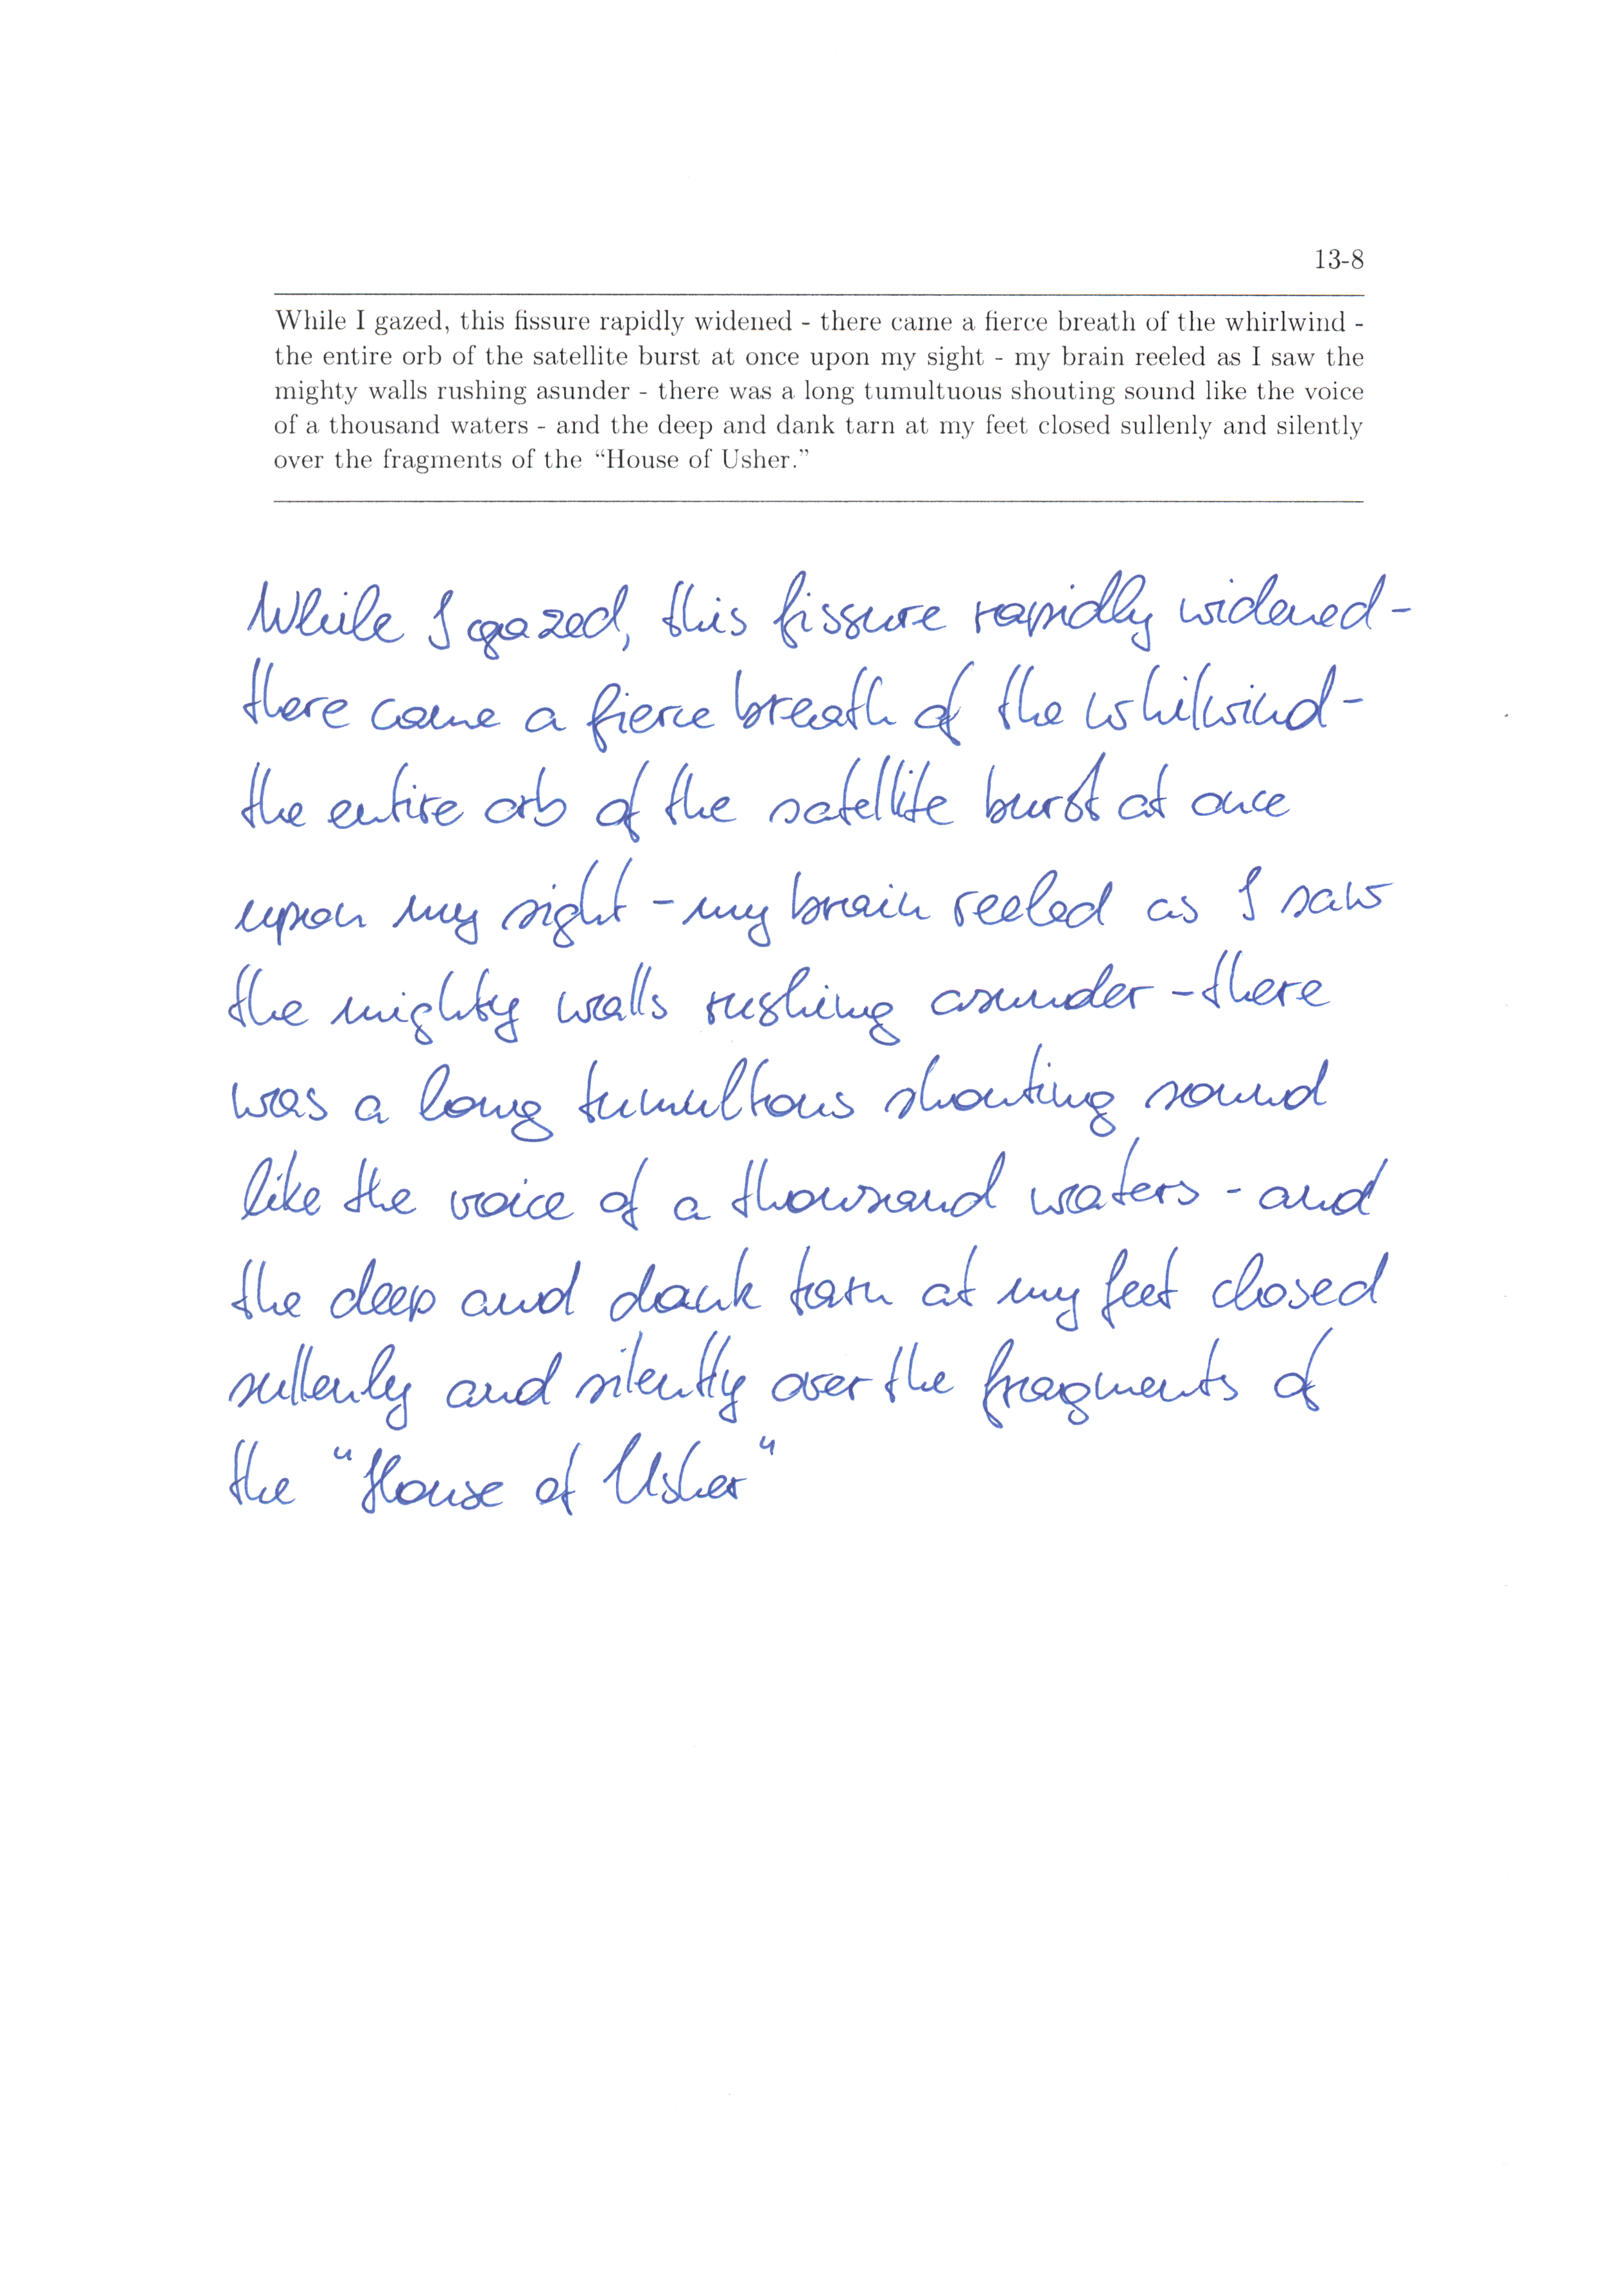 13-8
While I gazed, this fissure rapidly widened - there came a fierce breath of the whirlwind -
the entire orb of the satellite burst at once upon my sight - my brain reeled as I saw the
mighty walls rushing asunder - there was a long tumultuous shouting sound like the voice
of a thousand waters - and the deep and dank tarn at my feet closed sullenly and silently
over the fragments of the “House of Usher.”
While I gazed, this fissure rapidly widened -
there came a fierce breath of the whilwind -
the entire orb of the satellite burst at once
upon my sight - my brain reeled as I saw
the mighty walls rushing asunder - there
was a long tumultous shouting sound
like the voice of a thousand waters - and
the deep and dank tarn at my feet closed
sullenly and silently over the fragments of
the "House of Usher"